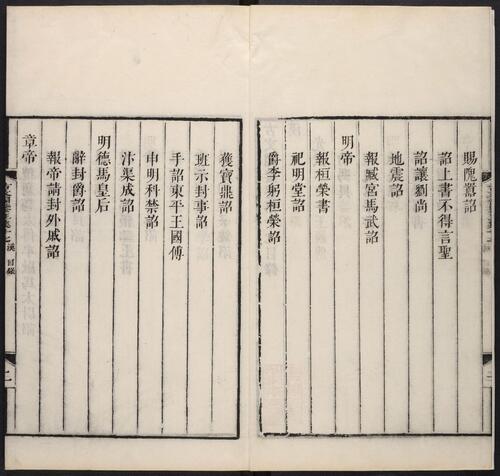 賜隗囂詔
詔上書不得言聖
詔讓劉尚
地震詔
報臧宮馬武詔
明帝
報桓榮書
祀明堂詔
爵李躬桓榮詔
獲寶鼎詔
班示封事詔
手詔東平王國傅
申明科禁詔
汴渠成詔
明德馬皇后
辭封爵詔
報帝請封外戚詔
章帝
漢 目錄